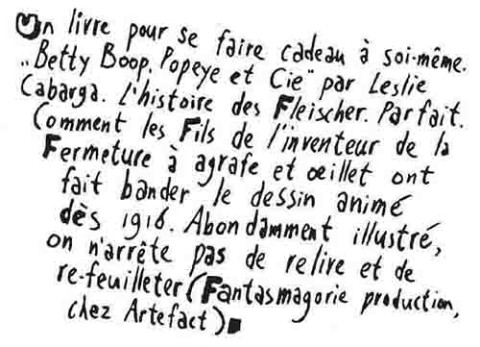 Un livre pour se faire cadeau à soi-même.
"Betty Boop, Popeye et Cie" par Leslie
Cabarga. L'histoire des Fleischer. Parfait.
Comment les Fils de l'inventeur de la
Fermeture à agrafe et œillet ont
fait bander le dessin animé
dès 1916. Abondamment illustré,
on n'arrête pas de relire et de
re-feuilleter (Fantasmagorie production,
chez Artefact)